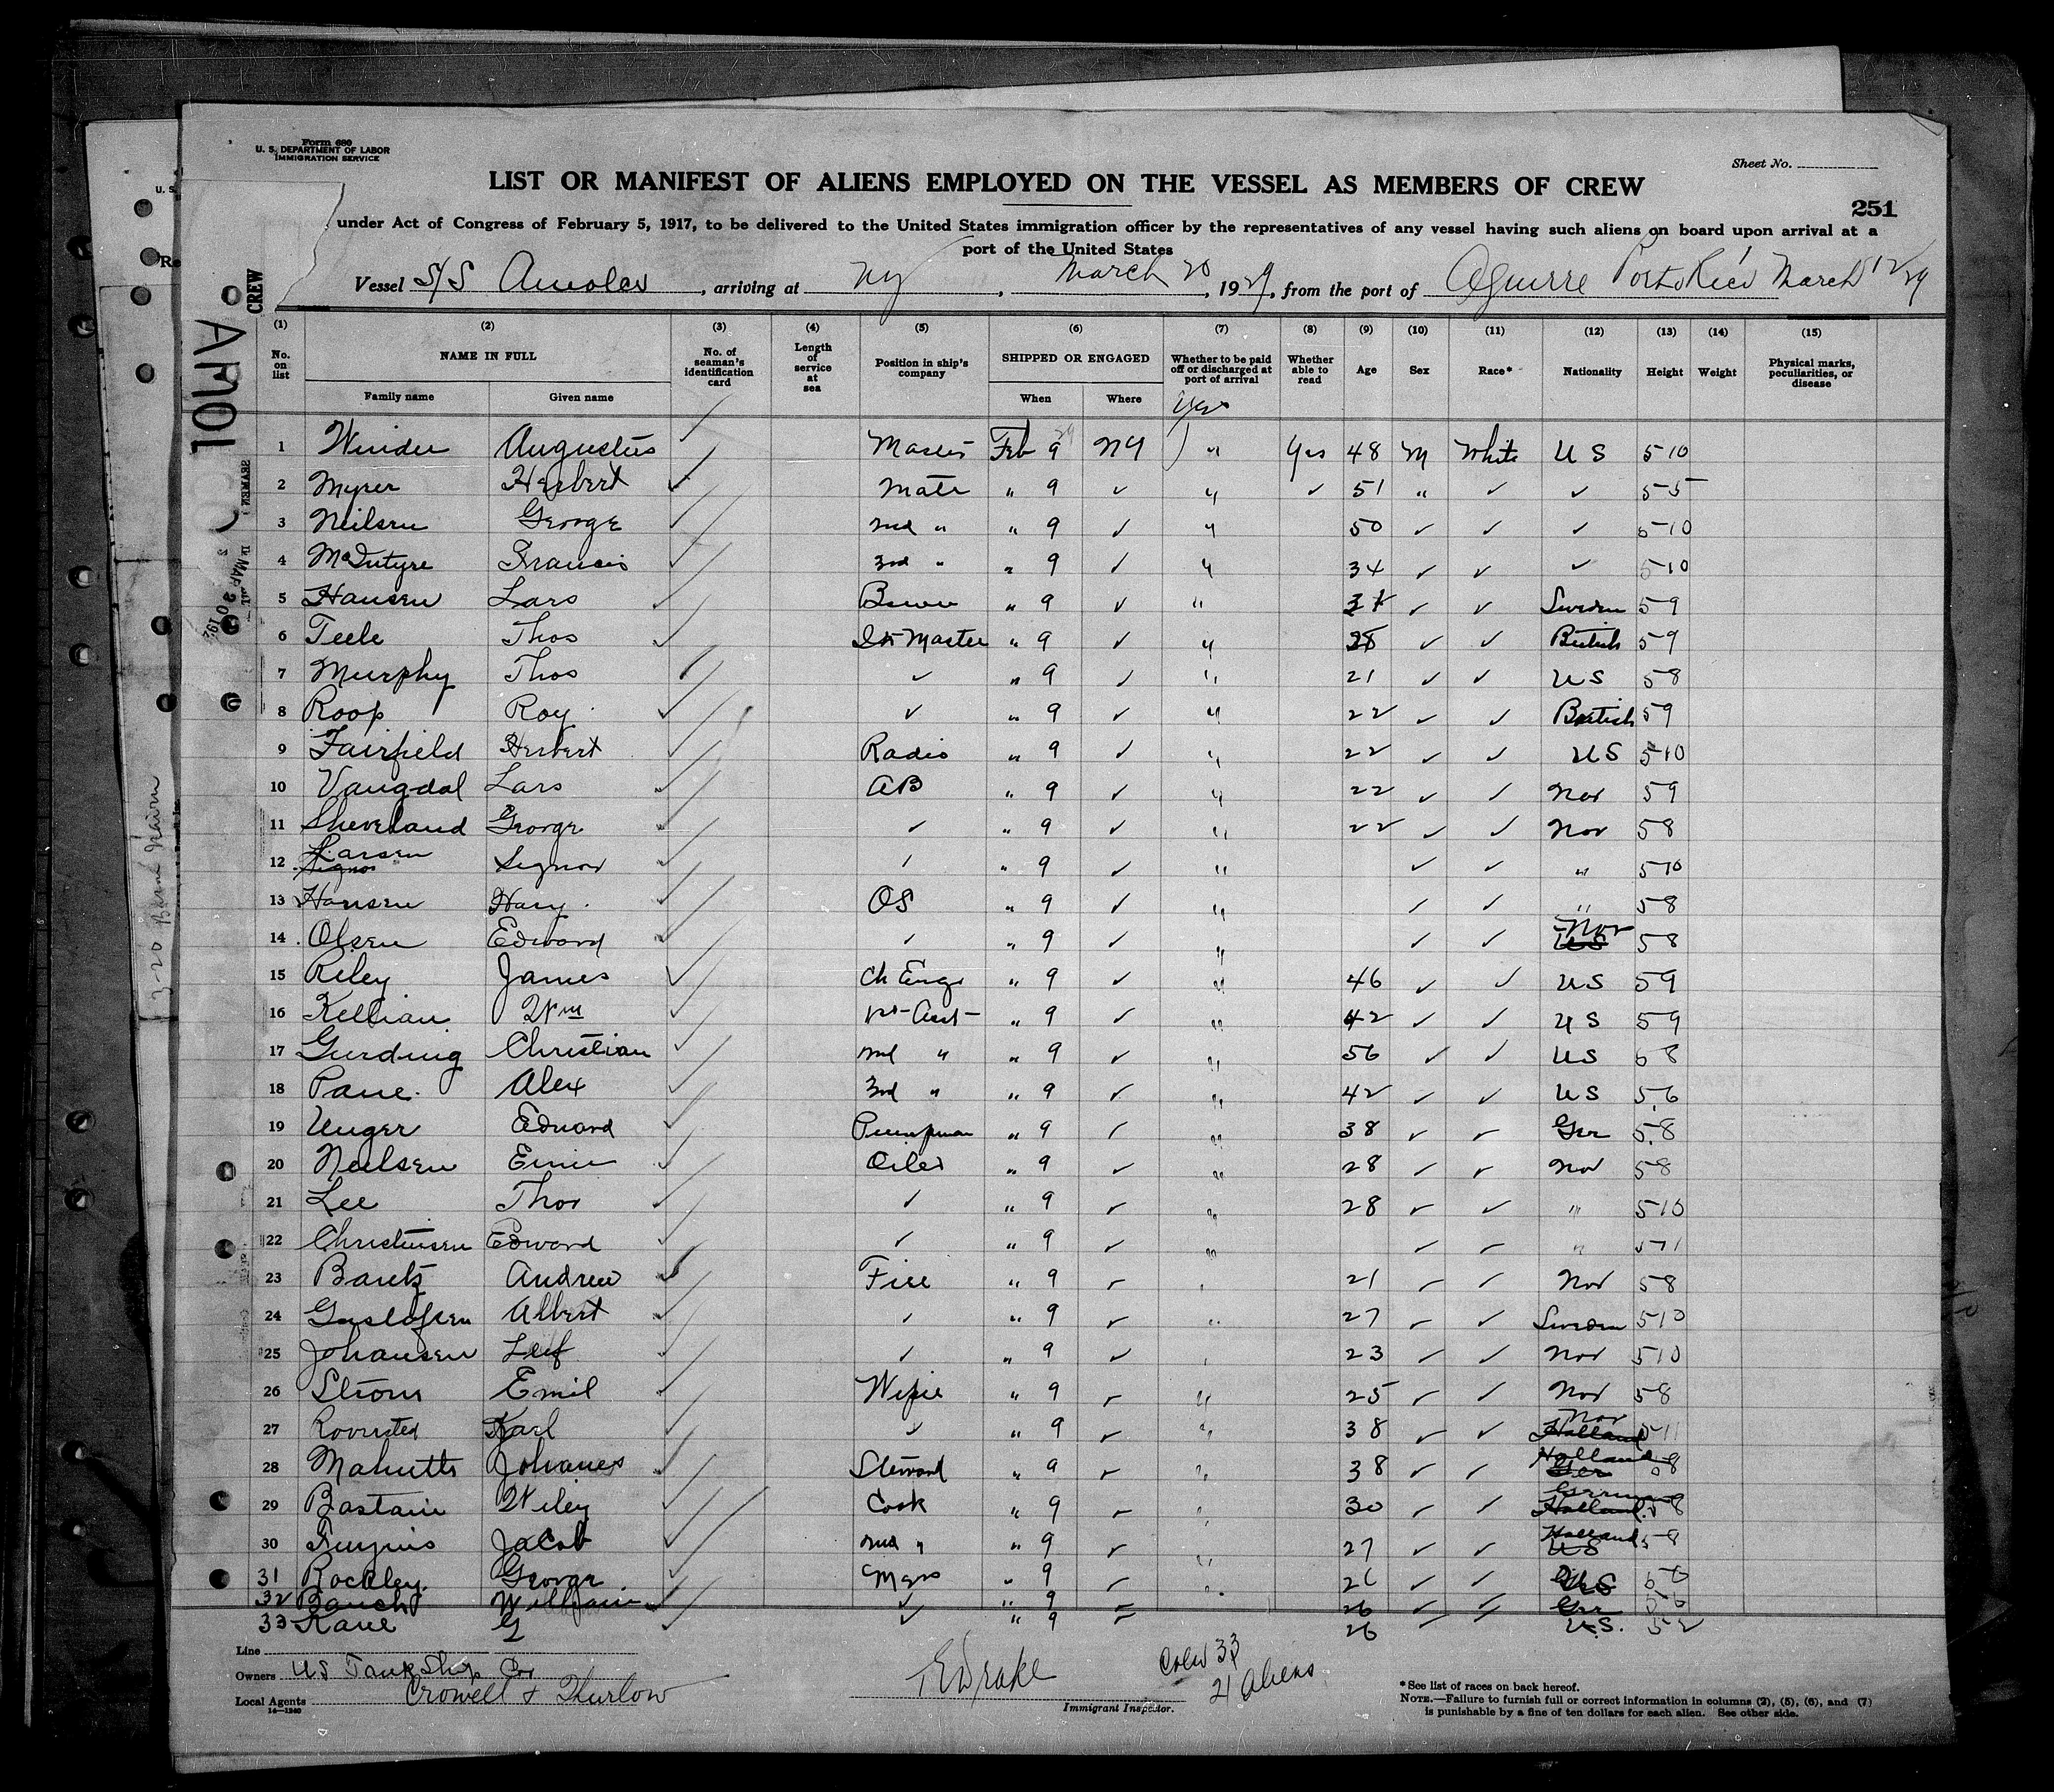 Form 680
U. S. DEPARTMENT OF LABOR
IMMIGRATION SERVICE
Sheet No.
LIST OR MANIFEST OF ALIENS EMPLOYED ON THE VESSEL AS MEMBERS OF CREW
251
under Act of Congress of February 5, 1917, to be delivered to the United States immigration officer by the representatives of any vessel having such aliens on board upon arrival at a
port of the United States
Vessel S/S Amolco, arriving at NY, March 20, 1929, from the port of Aguirre Porto Rico March 12/29
CREW
AMOL
(1) (2) (3) (4) (5) (6) (7) (8) (9) (10) (11) (12) (13) (14) (15)
No. on list NAME IN FULL No. of seaman's identification card Length of service at sea Position in ship's company SHIPPED OR ENGAGED Whether to be paid off or discharged at port of arrival Whether able to read Age Sex Race* Nationality Height Weight Physical marks, peculiarities, or disease
Family name Given name When Where
Yes
1 Winder Augustus Master Feb 9 29 NY " Yes 48 M White US 5-10
2 Myrer Herbert Mate " 9 ✓ " ✓ 51 " ✓ ✓ 5-5
3 Neilsen George 2nd " " 9 ✓ " 50 ✓ ✓ ✓ 5-10
4 McIntyre Francis 3rd " " 9 ✓ " 34 ✓ ✓ ✓ 5-10
5 Hansen Lars " 9 ✓ " ✓ ✓ Sweden 59
6 Teele Thos Qr Master " 9 ✓ " ✓ ✓ British 59
7 Murphy Thos ✓ " 9 ✓ " 21 ✓ ✓ US 58
8 Roop Roy ✓ " 9 ✓ " 22 ✓ ✓ British 59
9 Fairfield Herbert Radio " 9 ✓ " 22 ✓ ✓ US 5-10
10 Vangdal Lars AB " 9 ✓ " 22 ✓ ✓ Nor 59
11 Sheveland George ✓ " 9 ✓ " 22 ✓ ✓ Nor 58
12 Larsen Signor ✓ " 9 ✓ " ✓ ✓ " 5-10
13 Hansen Harry OS " 9 ✓ " ✓ ✓ " 58
14 Olsen Edward ✓ " 9 ✓ " ✓ ✓ Nor US 58
15 Riley James Ch Engr " 9 ✓ " 46 ✓ ✓ US 59
16 Kellian Wm 1st Asst " 9 ✓ " 42 ✓ ✓ US 59
17 Gurding Christian 2nd " " 9 ✓ " 56 ✓ ✓ US 58
18 Pane Alex 3rd " " 9 ✓ " 42 ✓ ✓ US 5.6
19 Unger Edward Pumpman " 9 ✓ " 38 ✓ ✓ Ger 5.8
20 Neilsen Oiler " 9 ✓ " 28 ✓ ✓ Nor 58
21 Lee Thor ✓ " 9 ✓ " 28 ✓ ✓ " 510
22 Christensen Edward ✓ " 9 ✓ " ✓ ✓ " 511
23 Bantz Andrew Fire " 9 ✓ " 21 ✓ ✓ Nor 58
24 Guslofsen Albert ✓ " 9 ✓ " 27 ✓ ✓ Sweden 510
25 Johansen Leif ✓ " 9 ✓ " 23 ✓ ✓ Nor 510
26 Strom Emil Wiper " 9 ✓ " 25 ✓ ✓ Nor 58
27 Karl ✓ " 9 ✓ " 38 ✓ ✓ Nor Holland 511
28 Johanes Steward " 9 ✓ " 38 ✓ ✓ Holland Ger 58
29 Bastain Wiley Cook " 9 ✓ " 30 ✓ ✓ German Holland 58
30 Jacob 2nd " " 9 ✓ " 27 ✓ ✓ Holland US 58
31 Rockley George Mess " 9 ✓ " 26 ✓ ✓ US
32 Bauch William ✓ " 9 26 ✓ ✓ Ger 56
33 Kane G ✓ " 9 26 ✓ ✓ U.S. 52
Line
Owners US Tank Ship Cor
Local Agents Crowell & Thurlow
14—1240
E Drake
Immigrant Inspector.
Crew 33
21 Aliens
* See list of races on back hereof.
NOTE.—Failure to furnish full or correct information in columns (2), (5), (6), and (7)
is punishable by a fine of ten dollars for each alien. See other side.